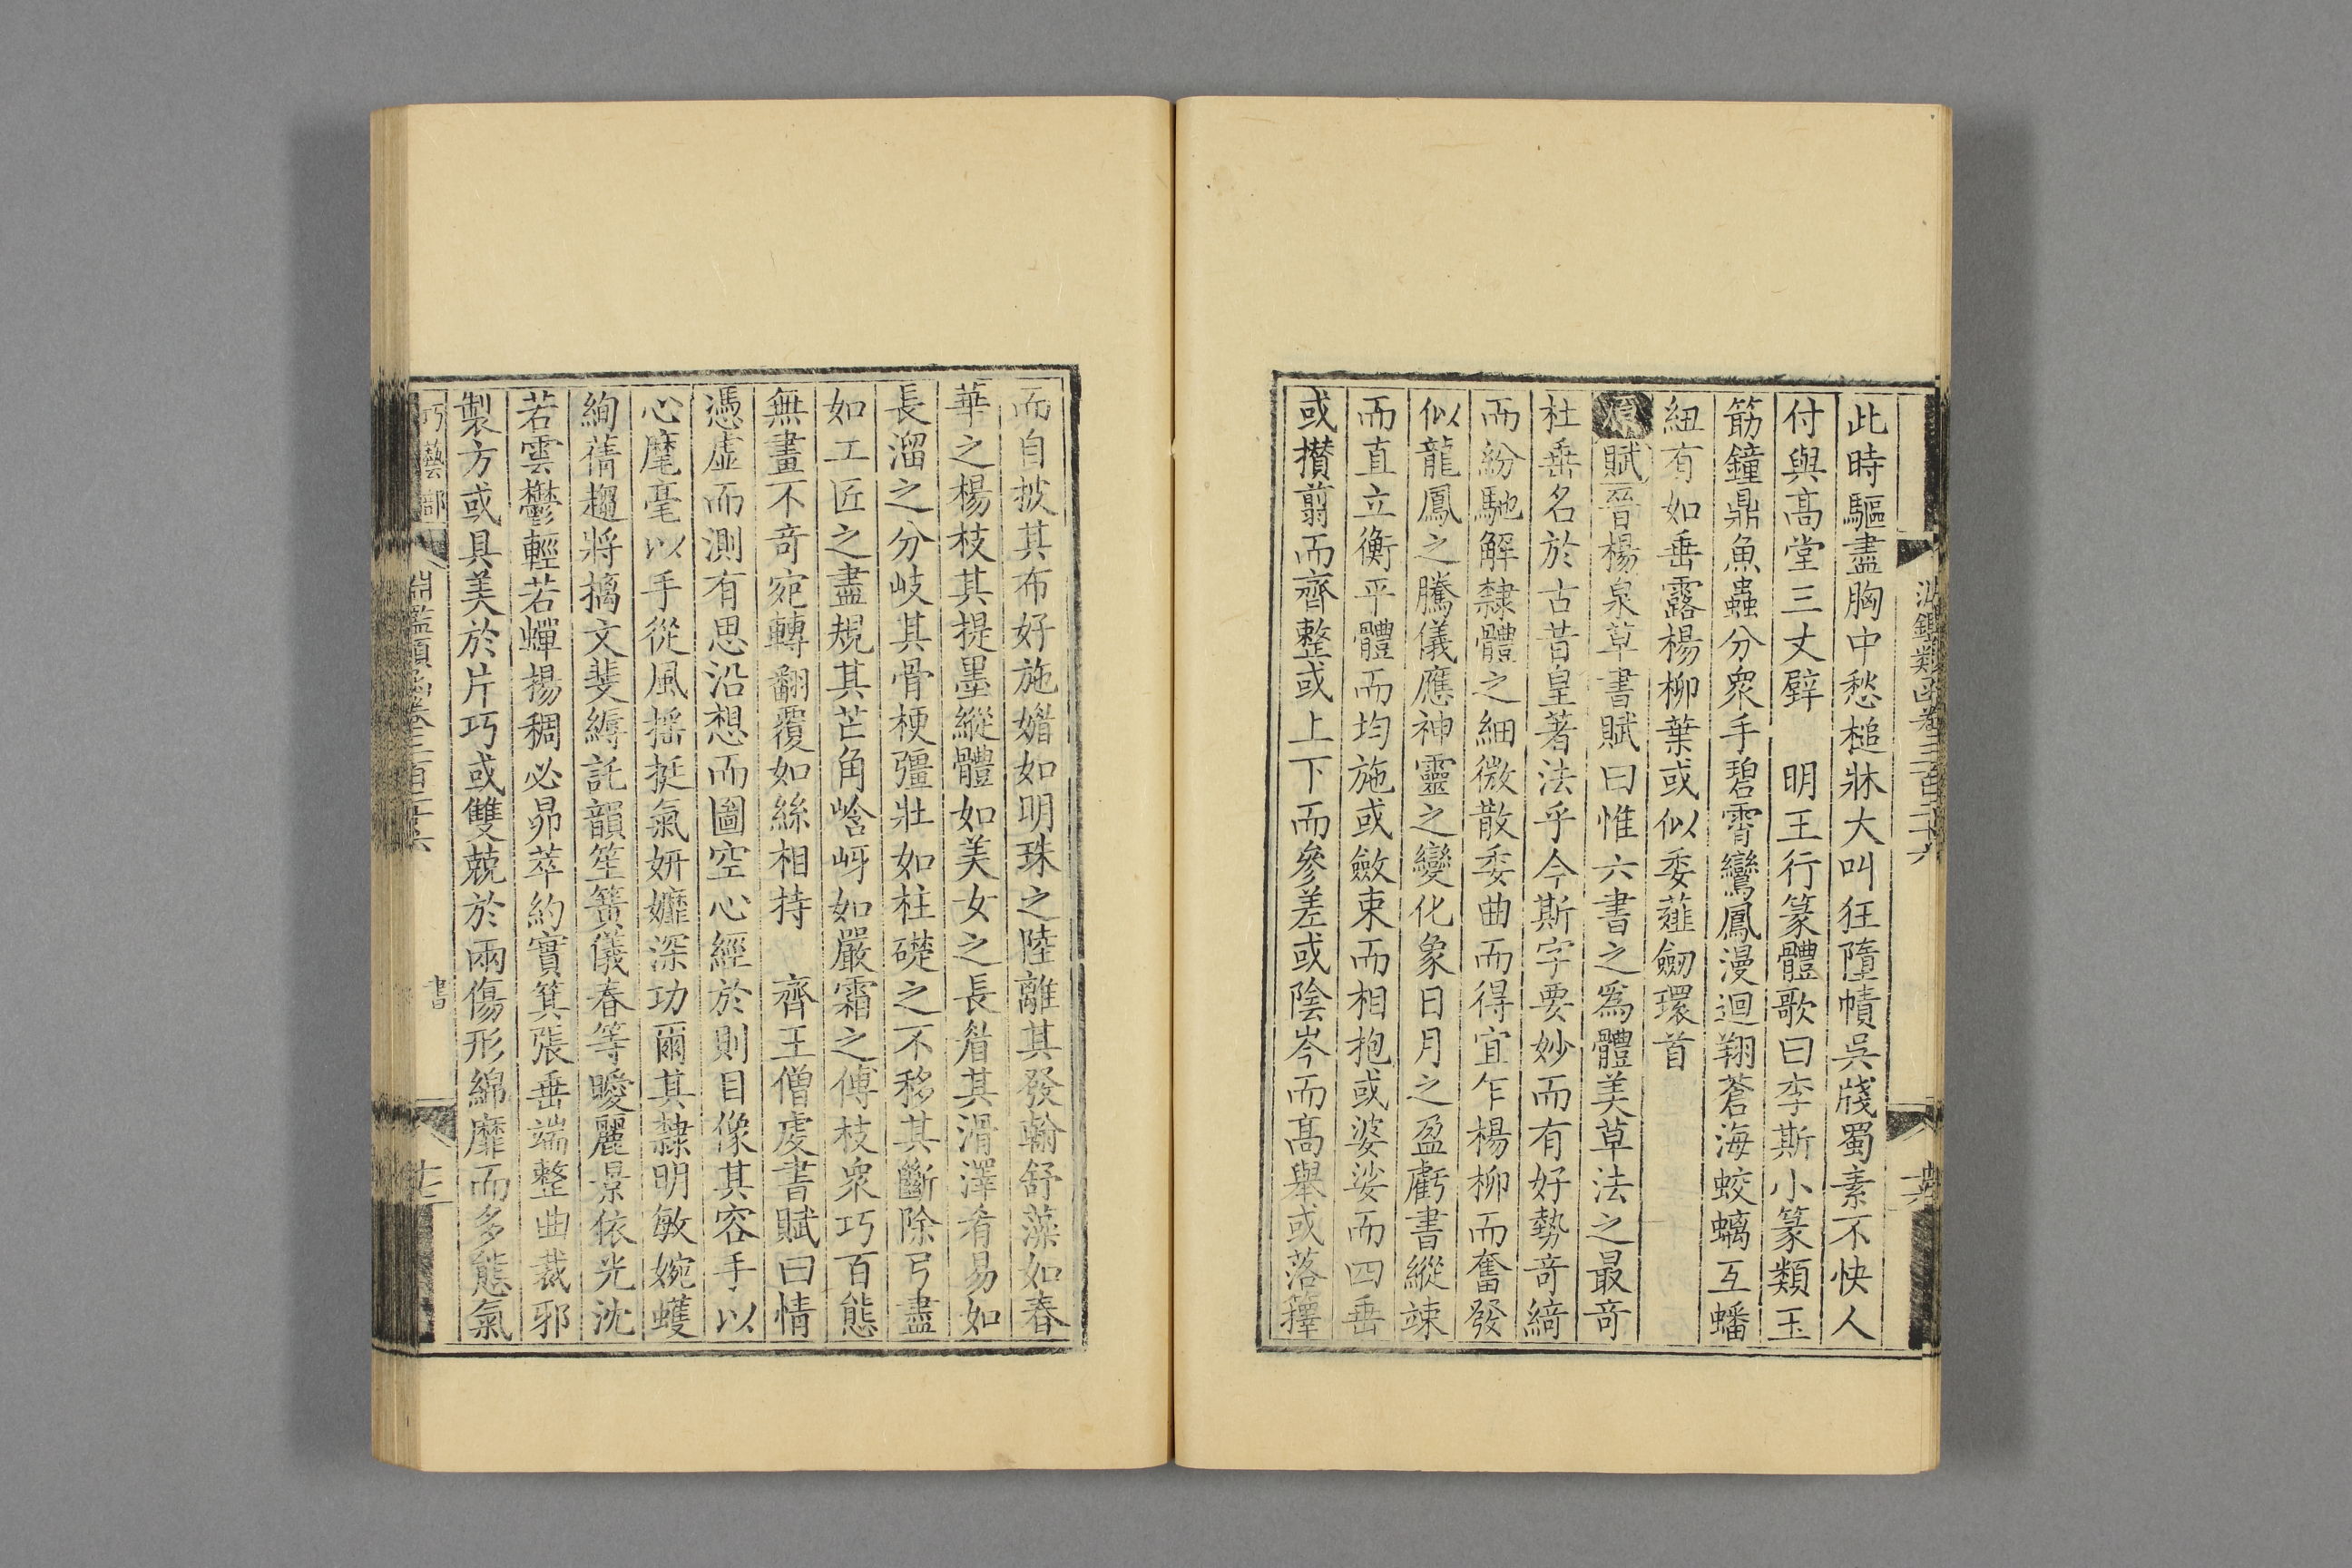 此時驅盡胸中愁槌牀大叫狂墮幘吳牋蜀素不快人
付與高堂三丈壁　明王行篆體歌曰李斯小篆類玉
筯鐘鼎魚蟲分衆手碧霄鸞鳳漫迴翔蒼海蛟螭互蟠
紐有如垂露楊柳葉或似委薤劒環首
原賦晉楊泉草書賦曰惟六書之爲體美草法之最奇
杜垂名於古昔皇著法乎今斯字要妙而有好勢奇綺
而紛馳解隸體之細微散委曲而得宜乍楊柳而奮發
似龍鳳之騰儀應神靈之變化象日月之盈虧書縱竦
而直立衡平體而均施或斂束而相抱或婆娑而四垂
或攅翦而齊整或上下而參差或陰岑而高舉或落籜
而自披其布好施媚如明珠之陸離其發翰舒藻如春
華之楊枝其提墨縱體如美女之長眉其滑澤肴易如
長溜之分岐其骨梗彊壯如柱礎之不移其斷除弓盡
如工匠之盡規其芒角㟏岈如嚴霜之傅枝衆巧百態
無畫不奇宛轉翻覆如絲相持　齊王僧虔書賦曰情
憑虛而測有思沿想而圖空心經於則目像其容手以
心麾毫以手從風揺挺氣妍孊深功爾其隸明敏婉蠖
絢蒨趨將摛文斐縟託韻笙簧儀春等曖麗景依光沈
若雲鬱輕若蟬揚稠必昴萃約實箕張垂端整曲裁邪
製方或具美於片巧或雙兢於兩傷形綿靡而多態氣
巧藝部　淵鑑類函卷三百二十六　書